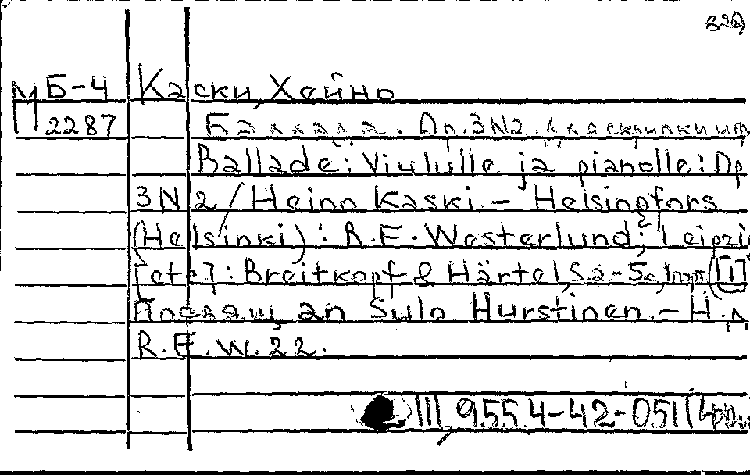 М Б-4 Каски, Хейно
2287 Баллада. Ор. 3 N 2. Для скрипки и ф
Ballade: Viululle ja pianolle: Op
3 N 2 / Heino Kaski. – Helsingfors
(Helsinki): R.E. Westerlund; Leipzi
[etc]: Breitkopf & Härtel, S.a – 5 с., 1 парт. (II)
Посвящ. an Sulo Hurstinen. – Н.д
R.E.W. 22.
III 9554-42-051 (4